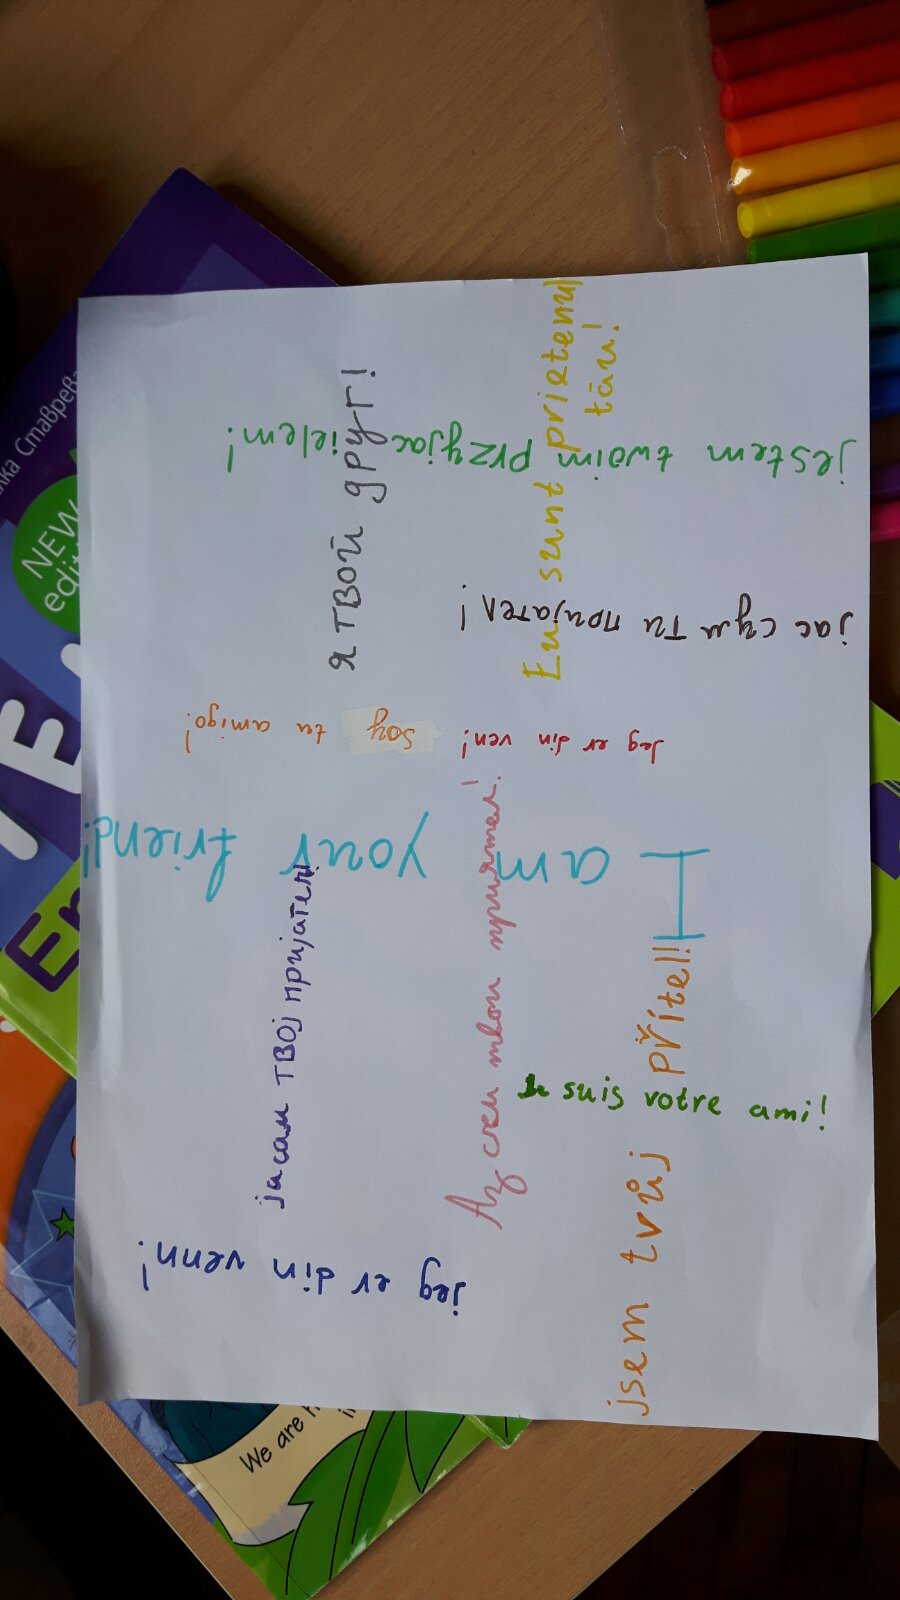 я твой друг!
Eu sunt prietenul
tău!
jestem twoim przyjacielem!
јас сум ти пријател!
soy tu amigo!
Jeg er din ven!
I am your friend!
јасам твој пријатељ!
Аз съм твой приятел!
jsem tvůj přítel!
Je suis votre ami!
jeg er din venn!
Ставрева
NEW
We are